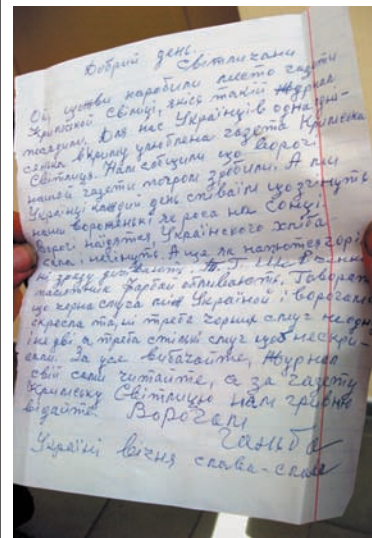 Добрий день
Світличани
Ой, що ж ви наробили
Кримській Світлиці, якійсь такій Журнал
посадили. Для нас Українців одна єдина
в Криму улюблена газета Кримська
Світлиця. Нам сповіщили що вороги
нашої газети погром зробили. А ми
Українці каждий день співаїм що згинуть
наши вороженькі як роса на Сонці
Вороги наїдятся Українского хліба
сала і негинуть. А ще як нажлутся горіл
ні зразу дуріють. Т. Г. Шевченка
памятник фарбой обливають. Говорять
що черна смуга між Україной і ворогами
скресла та, ні треба чорних смуг не одну
і не дві а треба стільки смуг щоб нескри-
сали. За усе вибачайте, Журнал
свій сами читайте, а за газету
Кримську Світлицю нам гривню
відайте. Ворогам
Ганьба
Україні вічня слава-слава